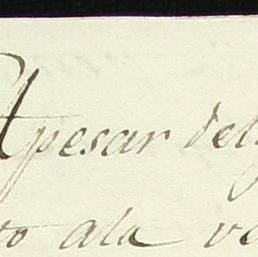 Apesar del
to ala ve